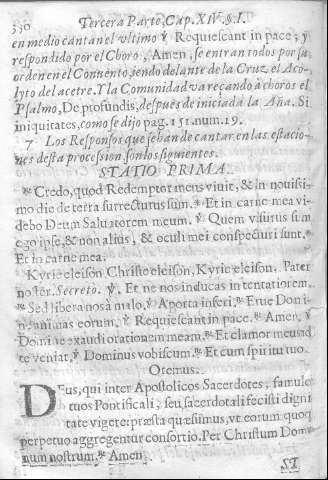 330 Tercera Parte, Cap. XIV. §. I.
en medio cantan el vltimo ℣. Requiescant in pace; y
respondido por el Choro, Amen, se entran todos por su
orden en el Conuento, iendo delante de la Cruz el Aco-
lyto del acetre. Y la Comunidad va reçando à choros el
Psalmo, De profundis, despues de iniciada la Aña. Si
iniquitates, como se dijo pag. 151. num. 19.
7 Los Responsos que se han de cantar, en las estacio-
nes desta procession, son los siguientes.
STATIO PRIMA.
℟. Credo, quod Redemptor meus viuit, & in nouissi-
mo die de terra surrecturus sum. * Et in carne mea vi-
debo Deum Saluatorem meum. ℣. Quem visurus sum
ego ipse, & non alius, & oculi mei conspecturi sunt. *
Et in carne mea.
Kyrie eleison Christe eleison, Kyrie eleison. Pater
noster. Secreto. ℣. Et ne nos inducas in tentationem.
℟. Sed libera nos à malo. ℣. A porta inferi. ℟. Erue Domi-
ne, animas eorum. ℣. Requiescant in pace. ℟. Amen. ℣.
Domine exaudi orationem meam. ℟. Et clamor meus ad
te veniat. ℣. Dominus vobiscum. ℟. Et cum spiritu tuo.
Oremus.
DEus, qui inter Apostolicos Sacerdotes, famulos
tuos Pontificali, seu sacerdotali fecisti digni
tate vigere: præsta quæsumus, vt eorum quoq
perpetuo aggregentur consortio. Per Christum Domi
num nostrum. ℟. Amen.
ST